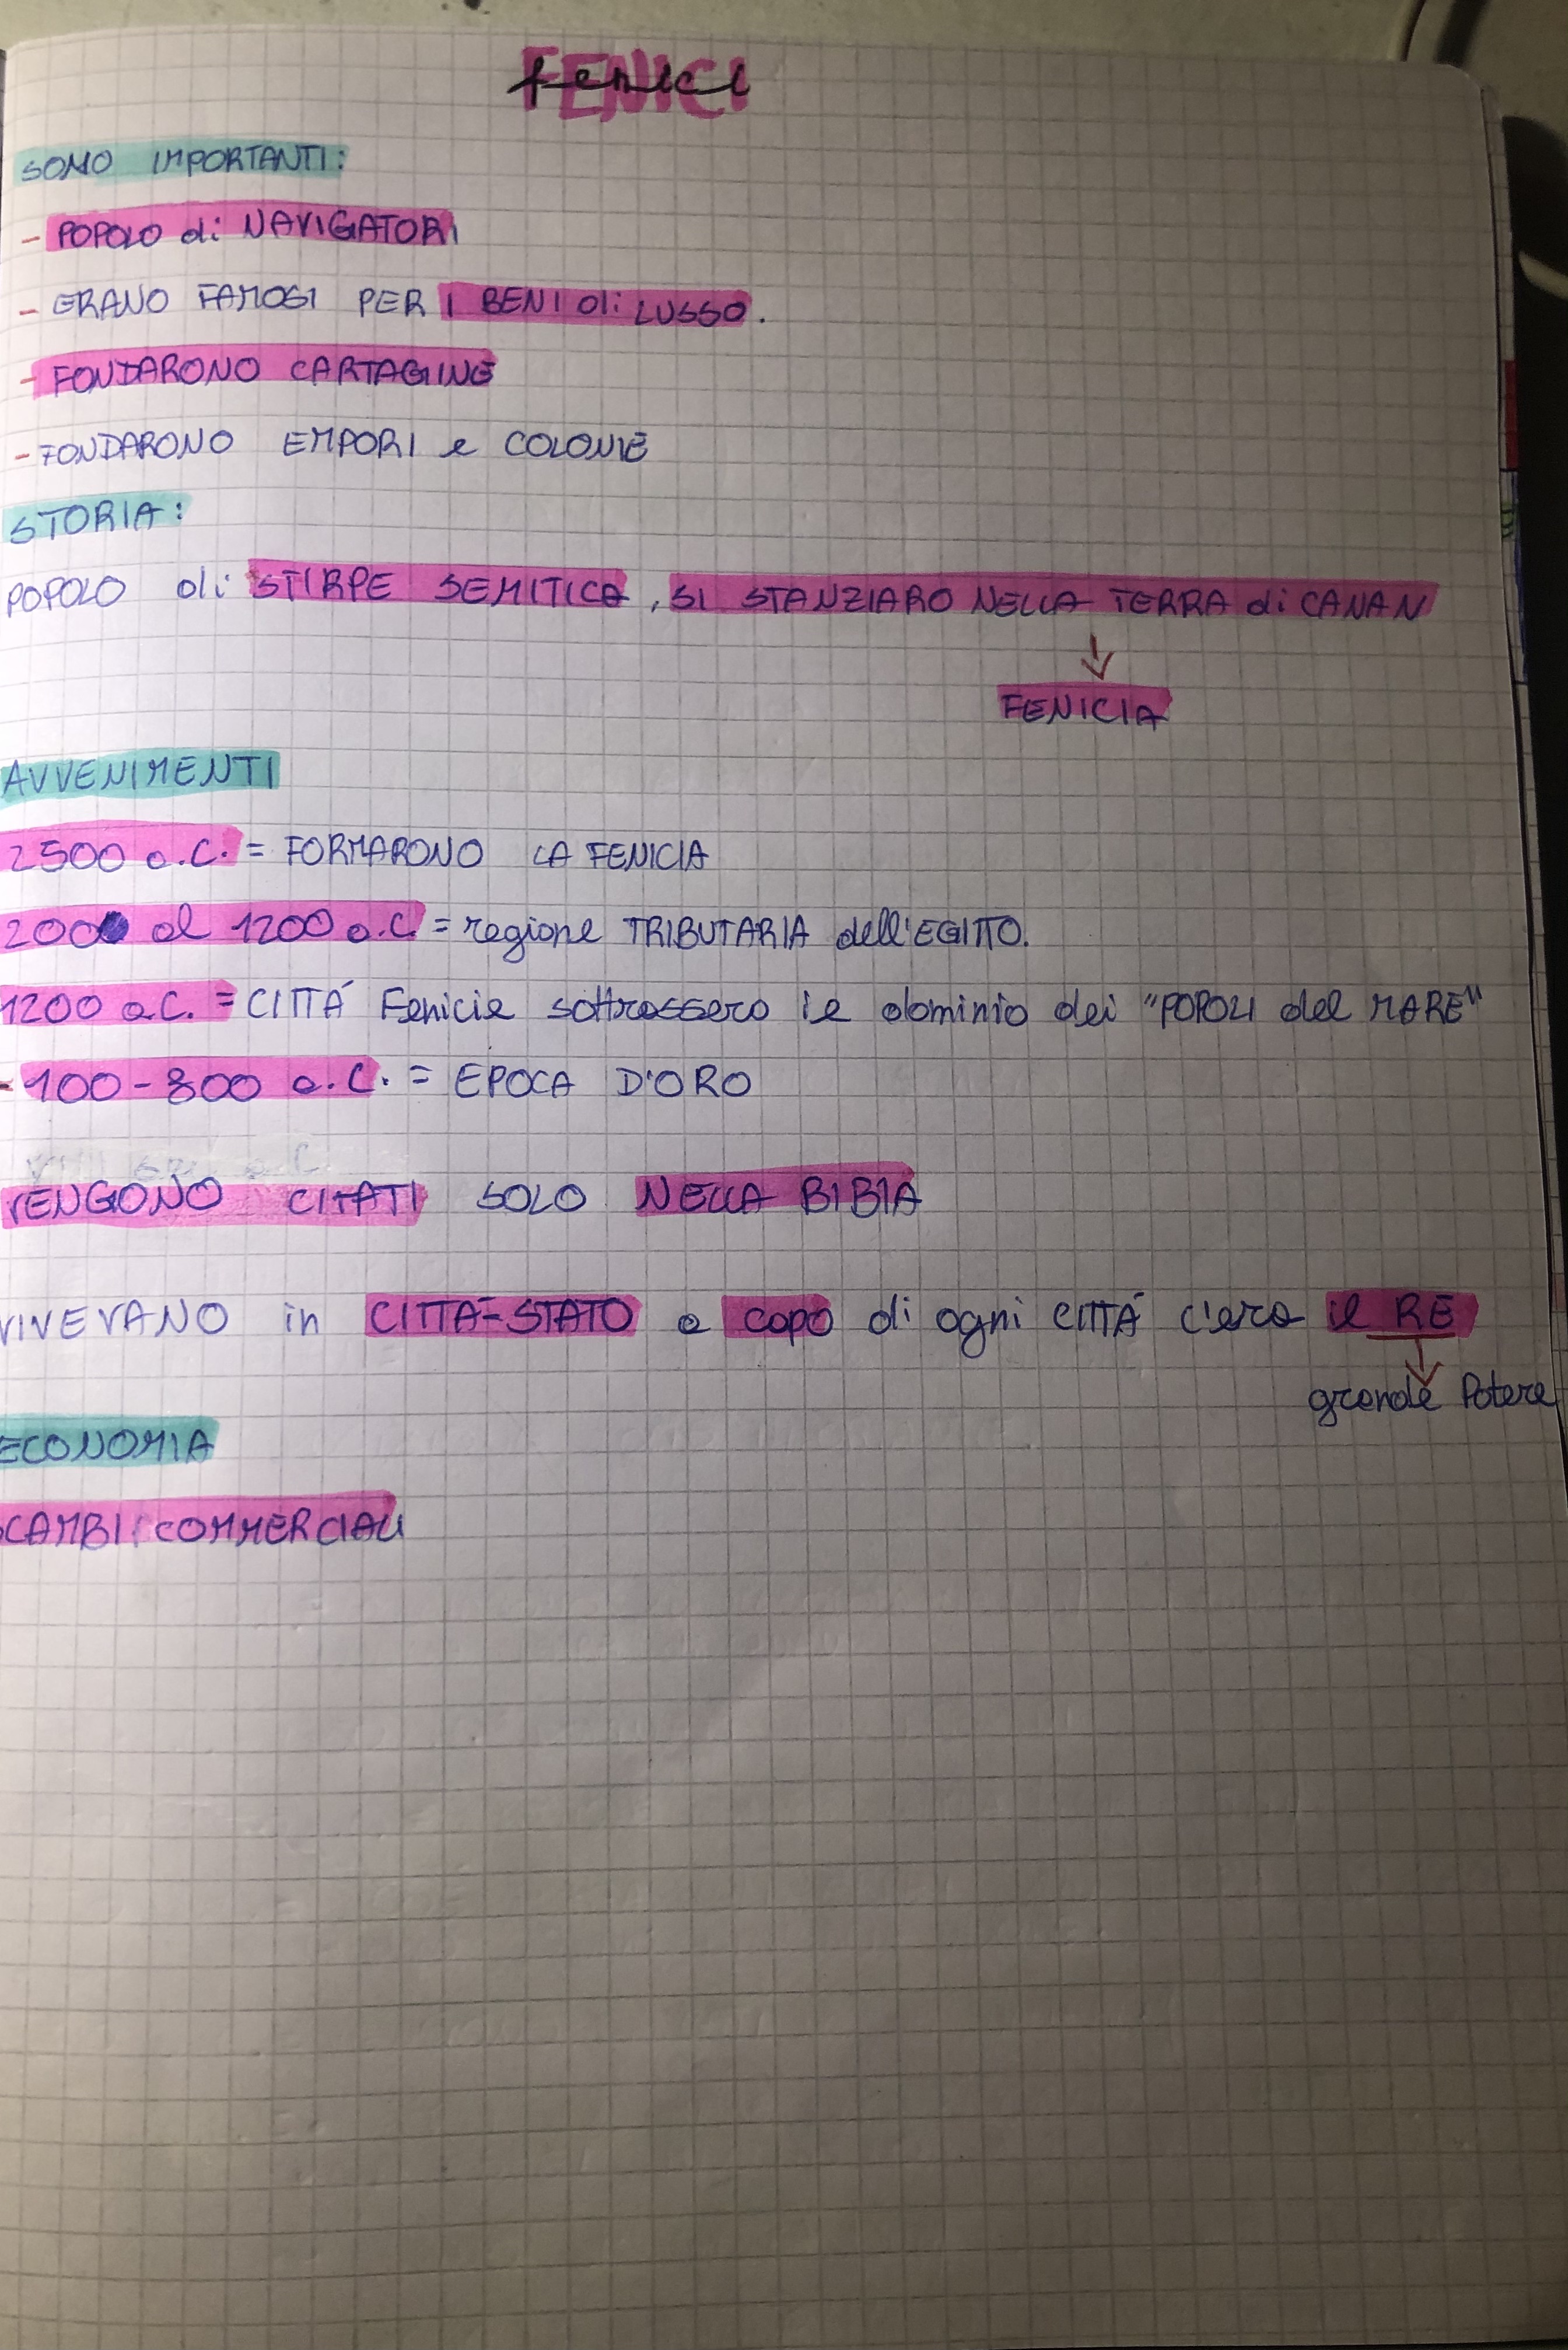 FENICI
SONO IMPORTANTI:
- POPOLO di NAVIGATORI
- ERANO FAMOSI PER I BENI di LUSSO.
- FONDARONO CARTAGINE
- FONDARONO EMPORI e COLONIE
STORIA:
POPOLO di STIRPE SEMITICA, SI STANZIARO NELLA TERRA di CANAN
↓
FENICIA
AVVENIMENTI
2500 a.C. = FORMARONO LA FENICIA
2000 al 1200 a.C = regione TRIBUTARIA dell'EGITTO.
1200 a.C. = CITTÁ Fenicie sottrassero il dominio dei "POPOLI del MARE"
- 100-800 a.C. = EPOCA D'ORO
VENGONO CITATI SOLO NELLA BIBIA
VIVEVANO in CITTÁ-STATO a capo di ogni CITTÁ c'era il RE
↓
grande Potere
ECONOMIA
SCAMBI COMMERCIALI